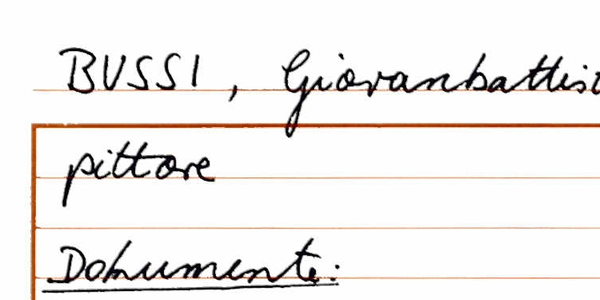 BUSSI, Giovanbattist
pittore
Dokumente: